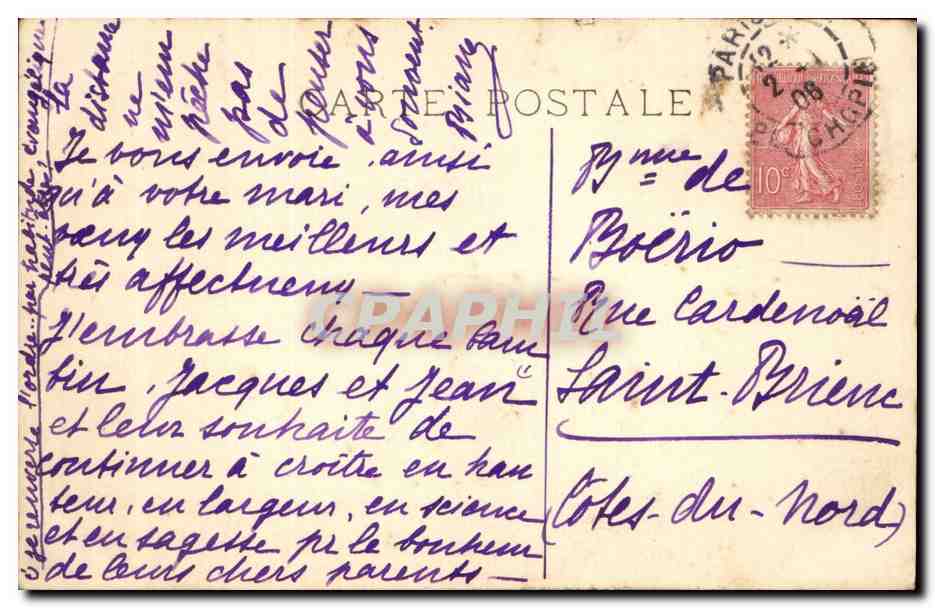 CARTE POSTALE
Je vous envoie, ainsi
qu'à votre mari, mes
vœux les meilleurs et
très affectueux —
J'embrasse chaque bam
bin, Jacques et Jean
et leur souhaite de
continuer à croître en hau
teur, en largeur, en science
et en sagesse pr le bonheur
de leurs chers parents —
La
distance
ne
m'em
pêche
pas
de
penser
à vous
souvent
l'ordre par habitude évangélique
Bnne de
Boërio
Rue Cardenoäl
Saint-Brieuc
(Côtes-du-Nord)
PARIS
12 *
2
08
10c
CRAPHIL